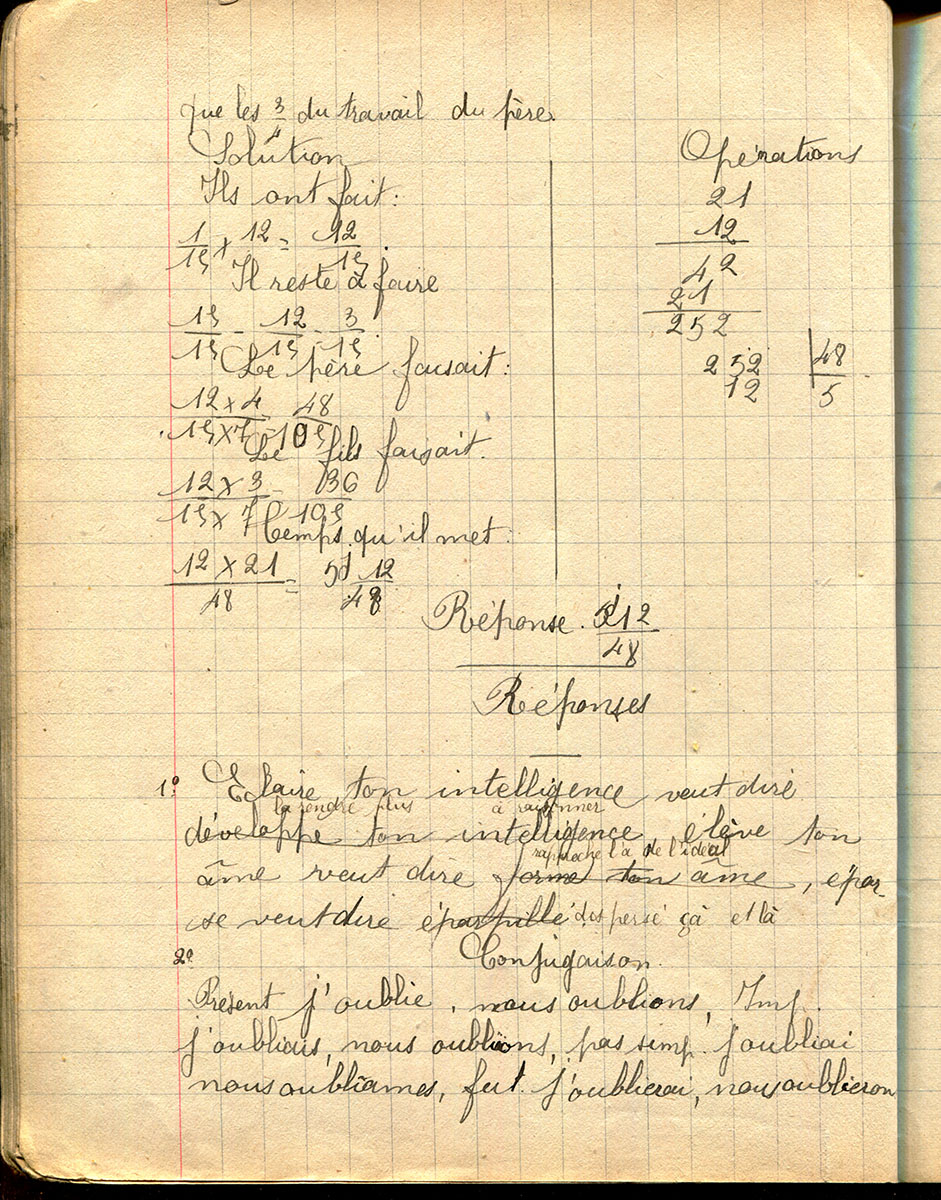 que les 3/4 du travail du père.
Solution
Ils ont fait:
1/15 x 12 = 12/15.
Il reste à faire
15/15 - 12/15 = 3/15
Le père faisait:
12 x 4 / 15 x 7 = 48/105
Le fils faisait.
12 x 3 / 15 x 7 = 36/105
Temps qu'il met:
12 x 21 / 48 = 5j 12/48
Opérations
21
12
42
21
252
252 48
12 5
Réponse. 5j 12/48
Réponses
1º Eclaire ton intelligence veut dire
la rendre plus à raisonner
développe ton intelligence, élève ton
rapproche la de l'idéal
âme veut dire forme ton âme, épar
se veut dire éparpillé dispersé çà et là
2º Conjugaison.
Présent j'oublie, nous oublions, Imp.
j'oubliais, nous oubliions, pas simp. j'oubliai
nous oubliâmes, fut. j'oublierai, nous oublieron